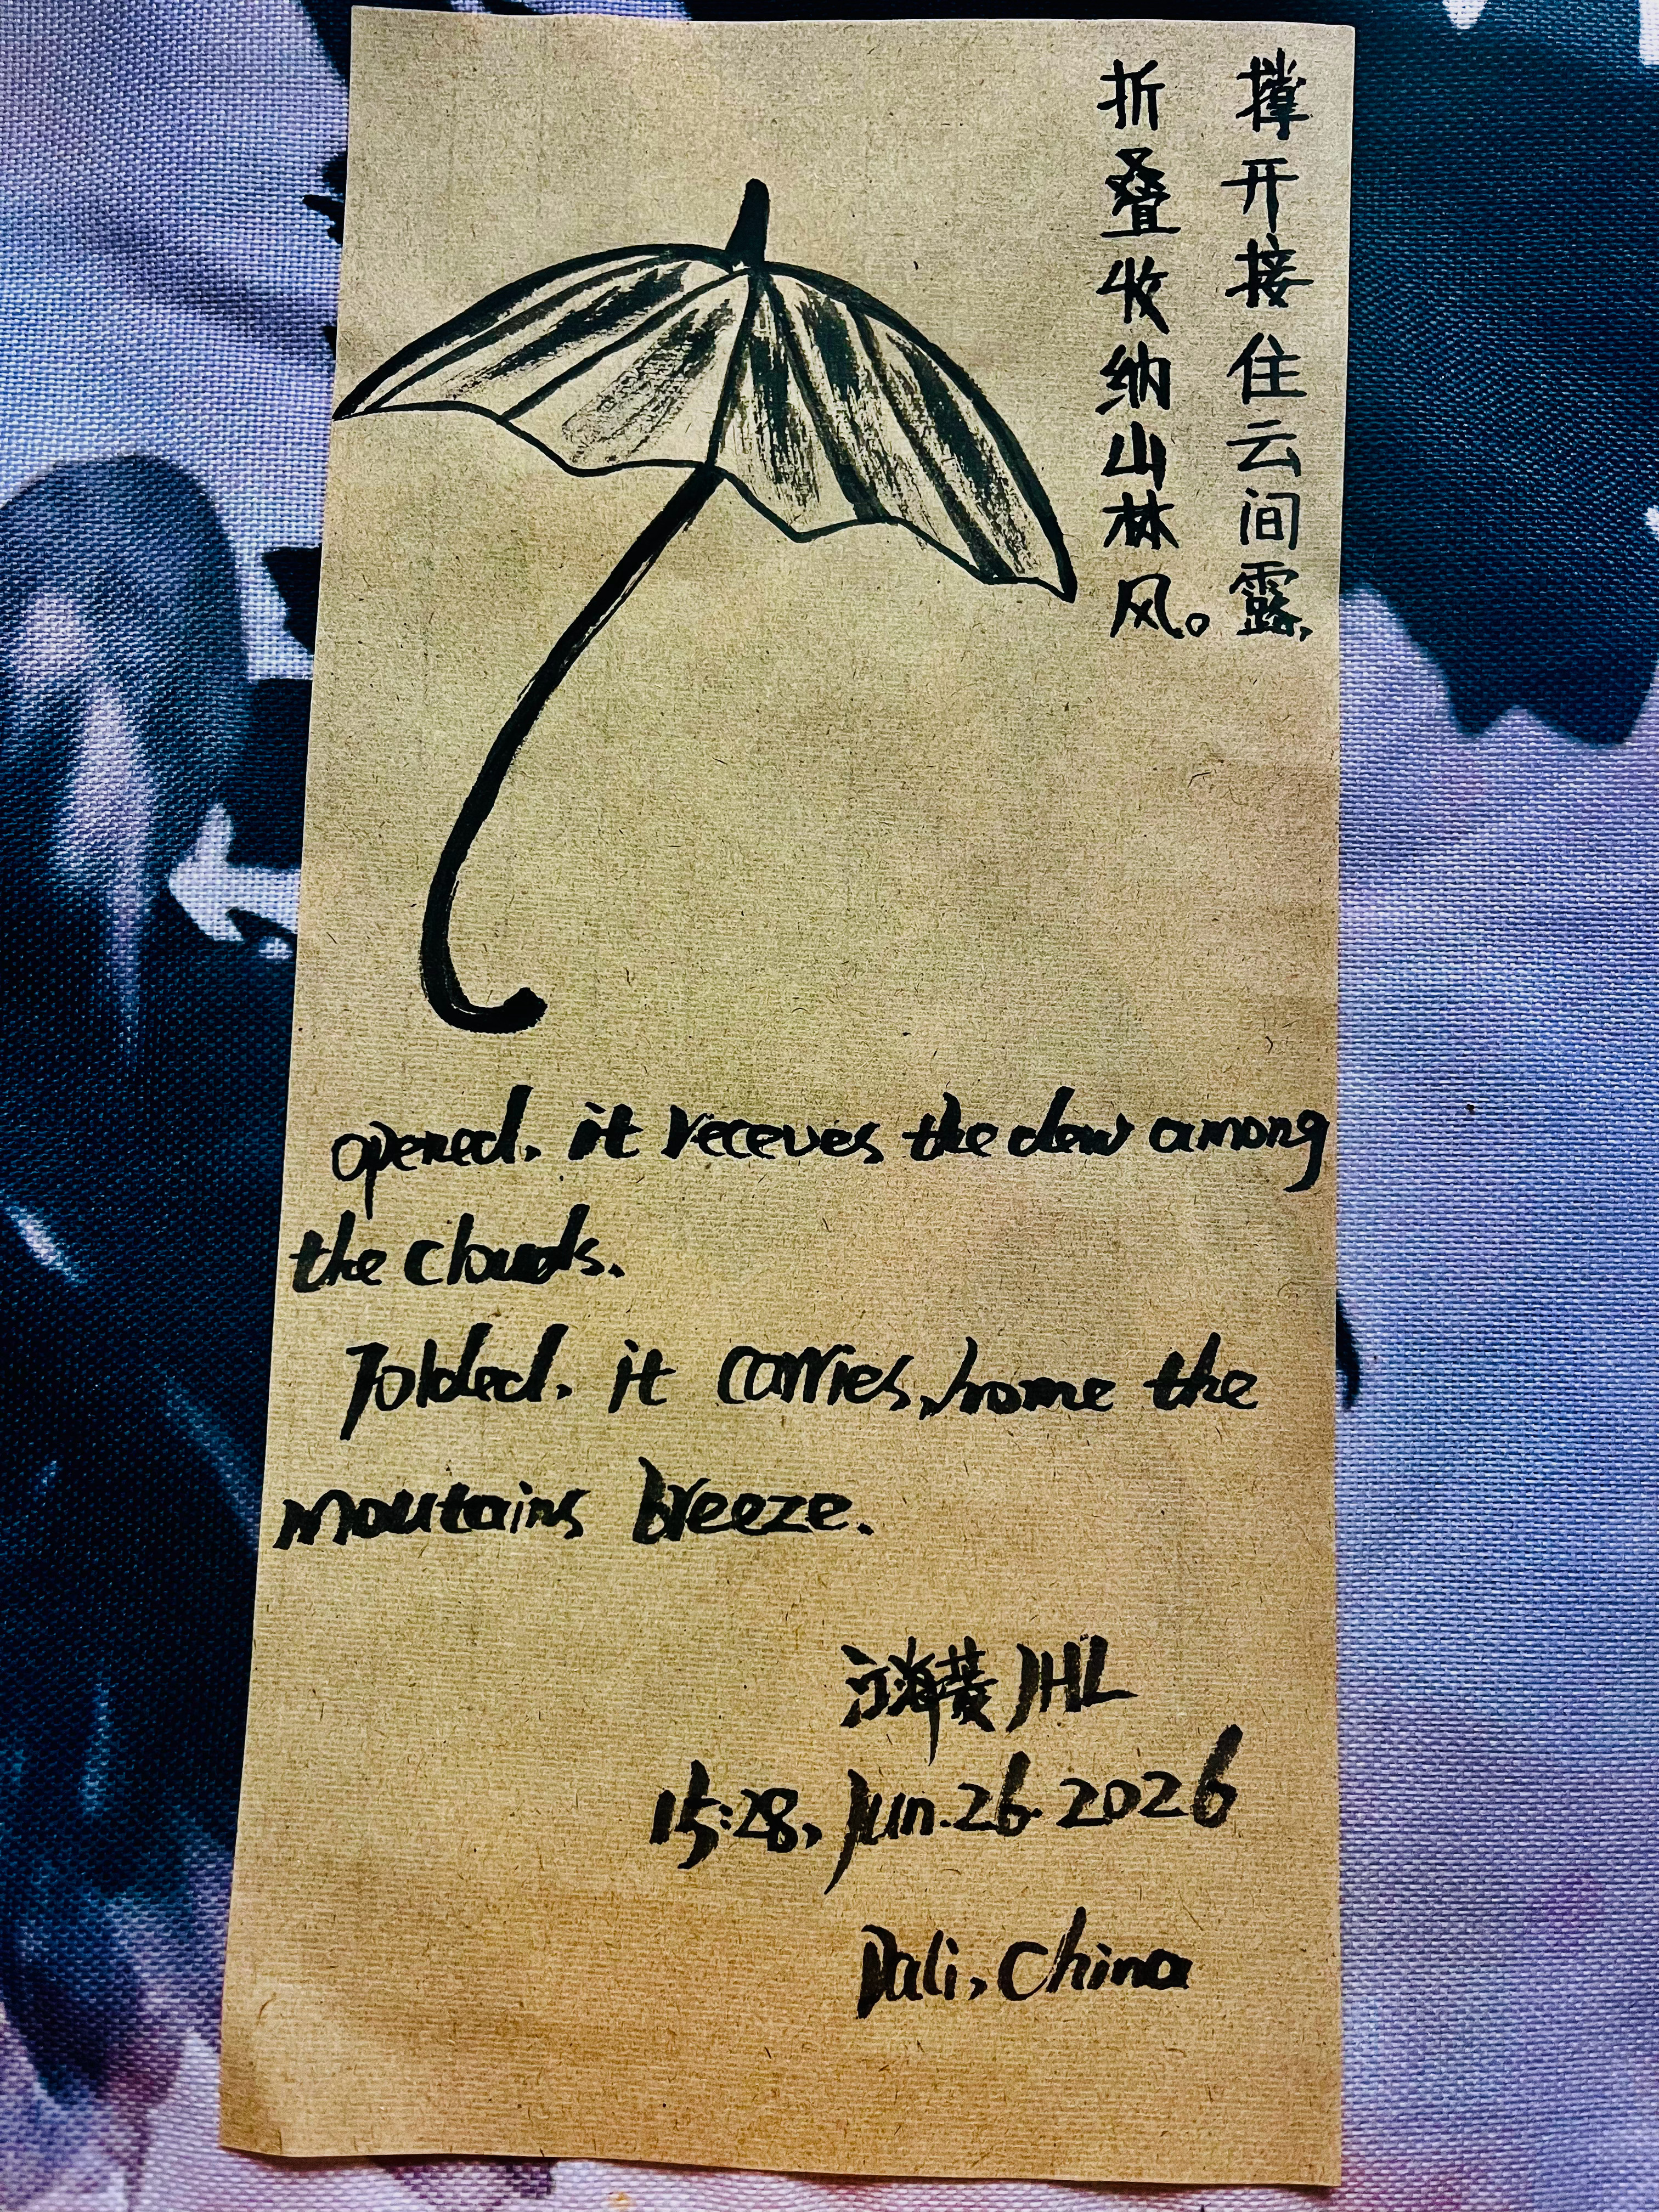 撑开接住云间露,
折叠收纳山林风。
opened. it receves the dew among
the clouds.
Folded. it carries home the
moutains breeze.
江海菱 JHL
15:28, Jun.26.2026
Dali, China